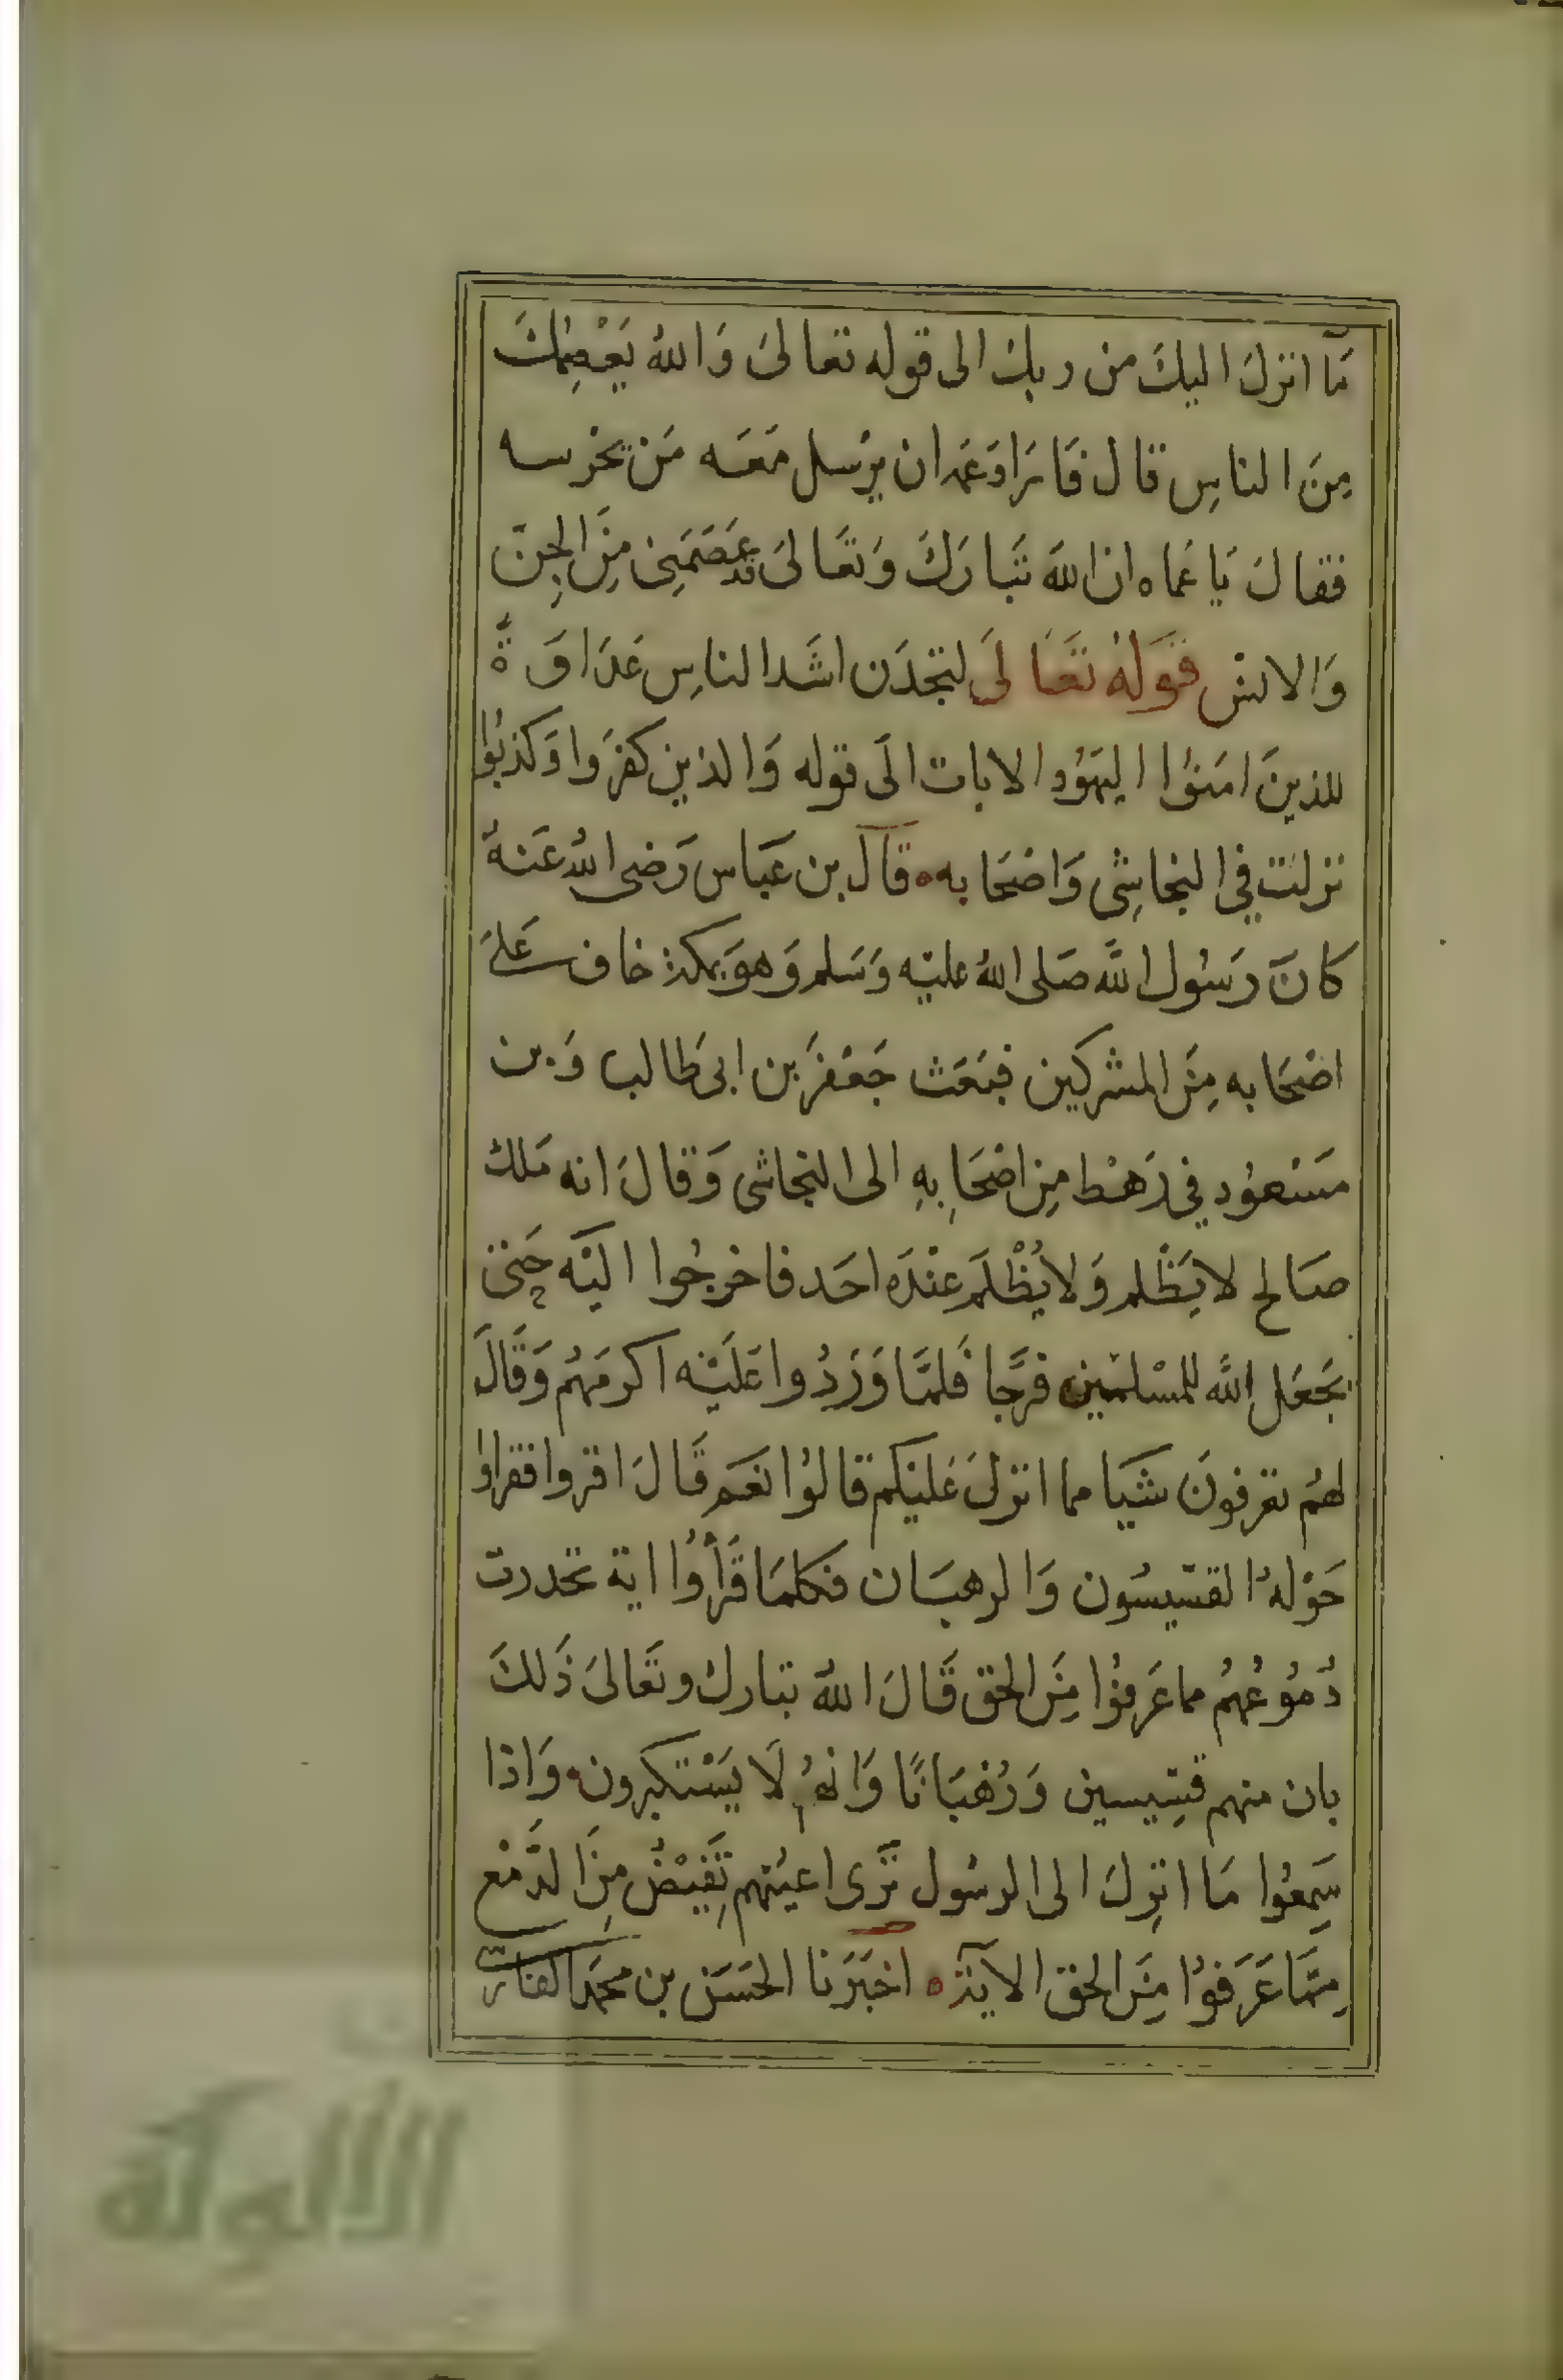 مَآ انزلَ اليكَ من ربكَ الى قوله تعالىَ وَاللهُ يَعْصِمُكَ
مِنَ الناسِ قال فَاَرَادَ عَمه ان يرْسل مَعَه مَن يحْرسه
فقالَ يَا عَماه ان اللهَ تَبارَكَ وَتعَالىَ قد عَصَمَنِى مِنَ الجِنّ
وَالانسْ قوَلهُ تعَالىَ لتجدَن اشَد الناسِ عَدَاوَةً
للذينَ امَنوُا اليهَوُد الايات الَى قوله وَالذين كفرَوا وَكذبوُا
نزلتْ فِي النجاشِى وَاصْحَابه ٥ قَالَ بن عَبَاس رَضى اللهُ عَنهُ
كانَ رَسُول اللَّه صَلى اللهُ عليْه وَسَلم وَهوَ بمكة خاف عَلىَ
اصْحَابه مِنَ المشركين فبَعَث جَعْفرَ بن ابى طَالب وَبن
مَسْعوُد فِي رَهْط مِن اصْحَابِهِ الى النجاشى وَقالَ انه مَلك
صَالح لا يَظْلم وَلا يُظْلَم عنْدَه احَد فاخرجُوا اليَه حَتىّ
يَجعَل اللَّه للمسْلمين فرَجا فَلمَّا وَرَدُوا عَليْه اكرمَهُم وَقَالَ
لهمُ تعرفونَ شَيَا مما انزلَ عَليْكم قالوُا نعَم قَالَ اقروا فقراوا
حَوْلهُ القسّيسُون وَالرهبَان فكلمَا قَرأوُا اية تحدرت
دُموُعُهمُ مما عَرفوُا مِنَ الحق قَالَ اللهُ تبارك وتعَالىَ ذَلكَ
بان منهم قسِيسين وَرُهْبَانًا وَانهمُ لَا يَسْتكبرون ٥ وَاذا
سَمِعوُا مَا انزِلَ الى الرسُول تَرَى اعينهم تَفيْضُ مِنَ الدَّمْع
مِمَّا عَرَفوُا مِنَ الحق الاَية ٥ اخبَرَنا الحَسَن بن محمَد الفارسّى